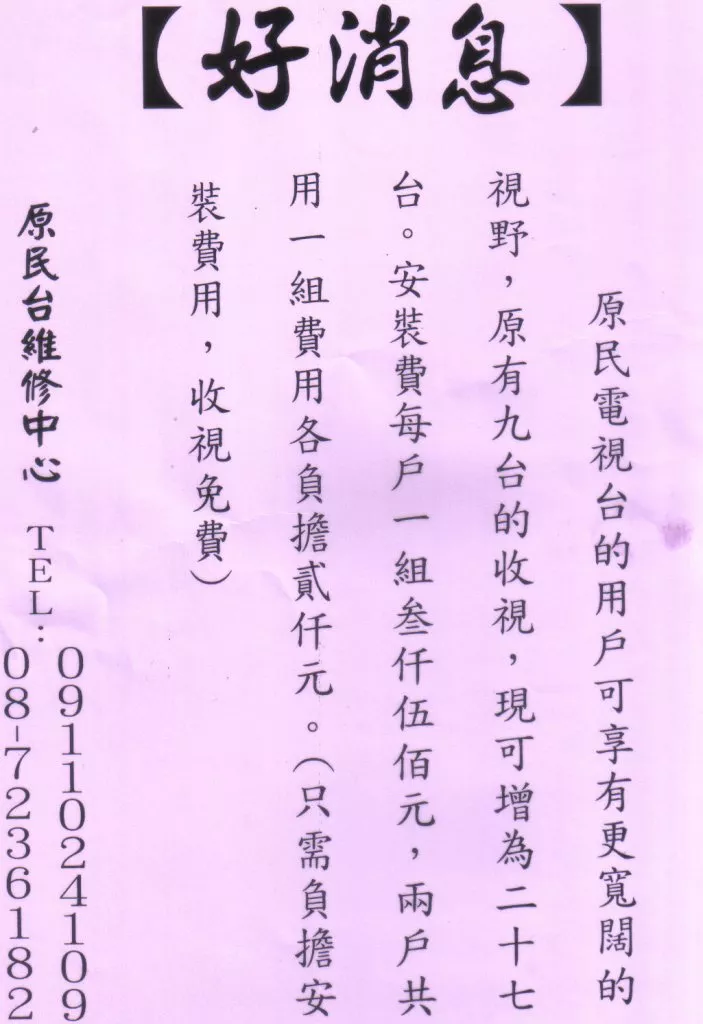 【好消息】
原民電視台的用戶可享有更寬闊的
視野，原有九台的收視，現可增為二十七
台。安裝費每戶一組叁仟伍佰元，兩戶共
用一組費用各負擔貳仟元。（只需負擔安
裝費用，收視免費）
原民台維修中心 TEL：
0911024109
08-7236182